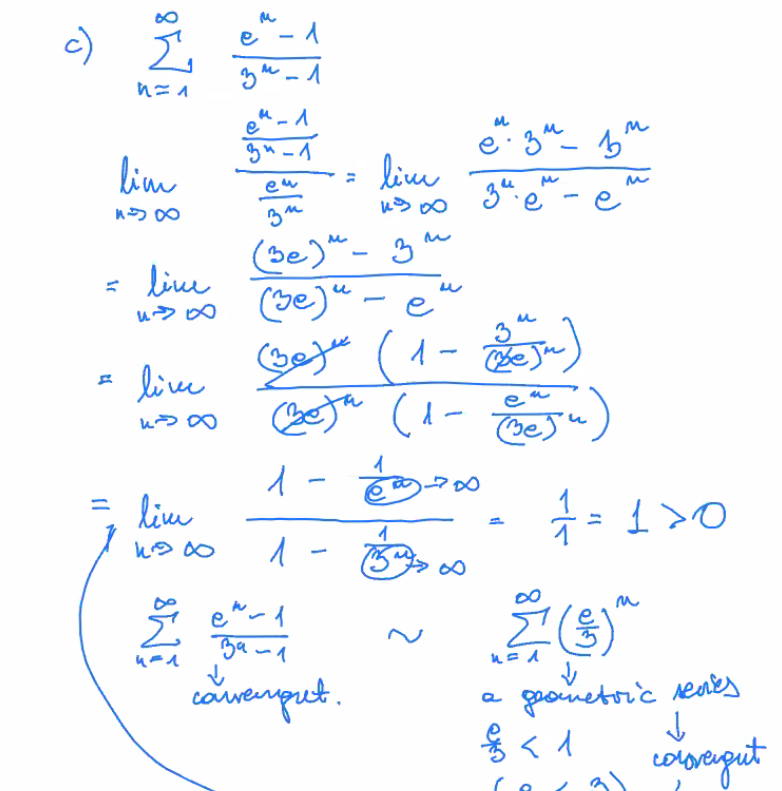 c) ∑_{n=1}^{∞} (e^n - 1)/(3^n - 1)
lim_{n→∞} ((e^n - 1)/(3^n - 1))/(e^n/3^n) = lim_{n→∞} (e^n · 3^n - 3^n)/(3^n · e^n - e^n)
= lim_{n→∞} ((3e)^n - 3^n)/((3e)^n - e^n)
= lim_{n→∞} ((3e)^n (1 - 3^n/(3e)^n))/((3e)^n (1 - e^n/(3e)^n))
= lim_{n→∞} (1 - 1/e^n → ∞)/(1 - 1/3^n → ∞) = 1/1 = 1 > 0
∑_{n=1}^{∞} (e^n - 1)/(3^n - 1) ~ ∑_{n=1}^{∞} (e/3)^n
↓ ↓
convergent. a geometric series
e/3 < 1 ↓ convergent
(e < 3)